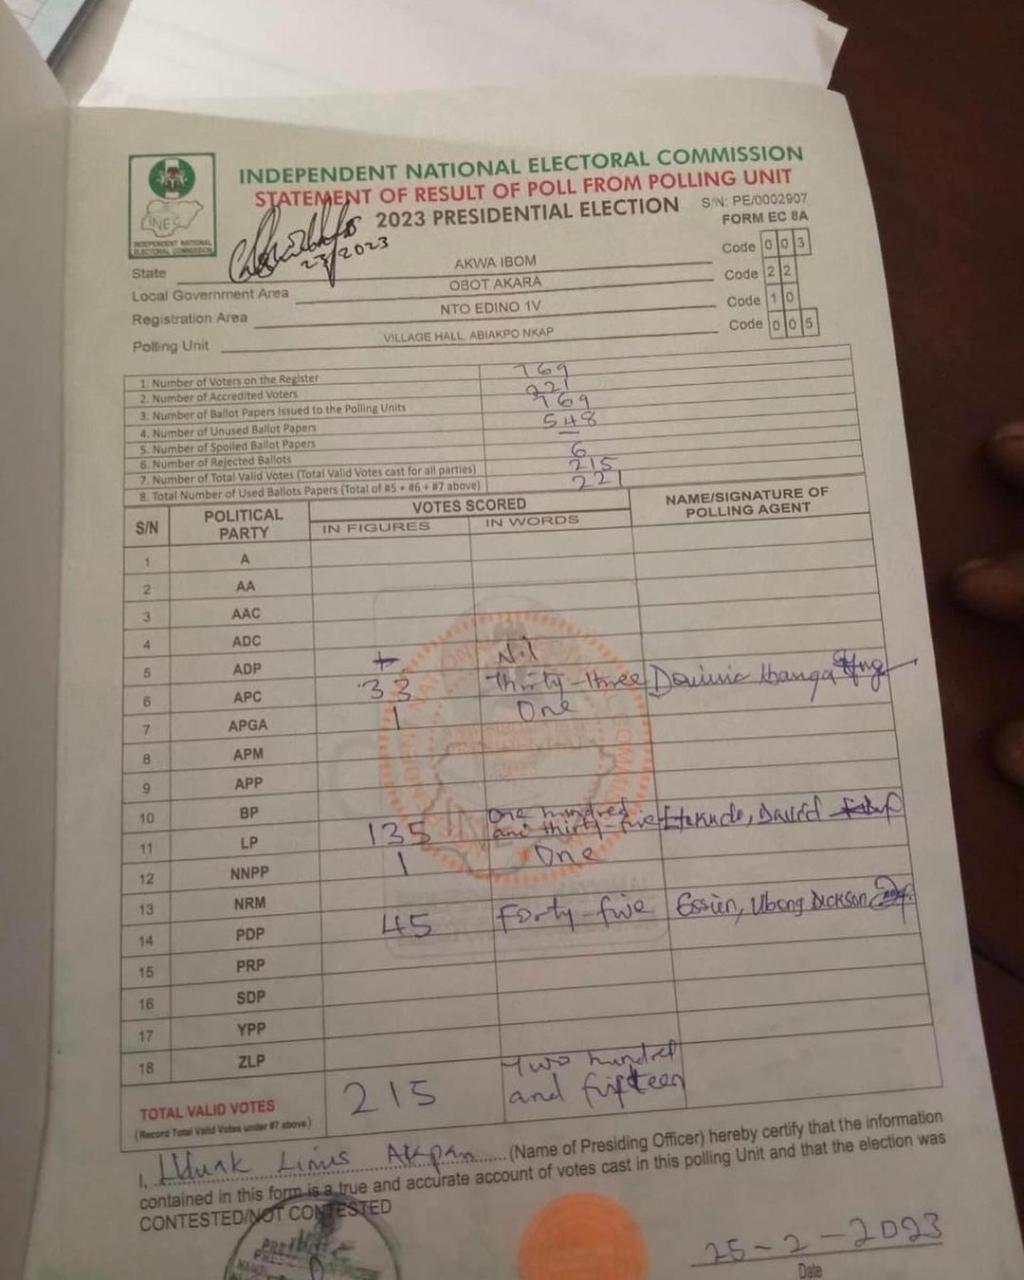 INDEPENDENT NATIONAL ELECTORAL COMMISSION
STATEMENT OF RESULT OF POLL FROM POLLING UNIT
2023 PRESIDENTIAL ELECTION
S/N: PE/0002907
FORM EC 8A
INEC
INDEPENDENT NATIONAL
ELECTORAL COMMISSION
23/2023
State AKWA IBOM Code 003
Local Government Area OBOT AKARA Code 22
Registration Area NTO EDINO 1V Code 10
Polling Unit VILLAGE HALL, ABIAKPO NKAP Code 005
1. Number of Voters on the Register 769
2. Number of Accredited Voters 221
3. Number of Ballot Papers Issued to the Polling Units 769
4. Number of Unused Ballot Papers 548
5. Number of Spoiled Ballot Papers —
6. Number of Rejected Ballots 6
7. Number of Total Valid Votes (Total Valid Votes cast for all parties) 215
8. Total Number of Used Ballots Papers (Total of #5 + #6 + #7 above) 221
S/N POLITICAL PARTY VOTES SCORED NAME/SIGNATURE OF POLLING AGENT
IN FIGURES IN WORDS
1 A
2 AA
3 AAC
4 ADC
5 ADP Nil
6 APC 33 Thirty-three Dominic
7 APGA 1 One
8 APM
9 APP
10 BP
11 LP 135 One hundred and thirty-five David
12 NNPP 1 One
13 NRM
14 PDP 45 Forty-five Essien, Ubong Dickson
15 PRP
16 SDP
17 YPP
18 ZLP
TOTAL VALID VOTES 215 Two hundred and fifteen
(Record Total Valid Votes under #7 above)
I, Linus Akpan (Name of Presiding Officer) hereby certify that the information
contained in this form is a true and accurate account of votes cast in this polling Unit and that the election was
CONTESTED/NOT CONTESTED
25-2-2023
Date